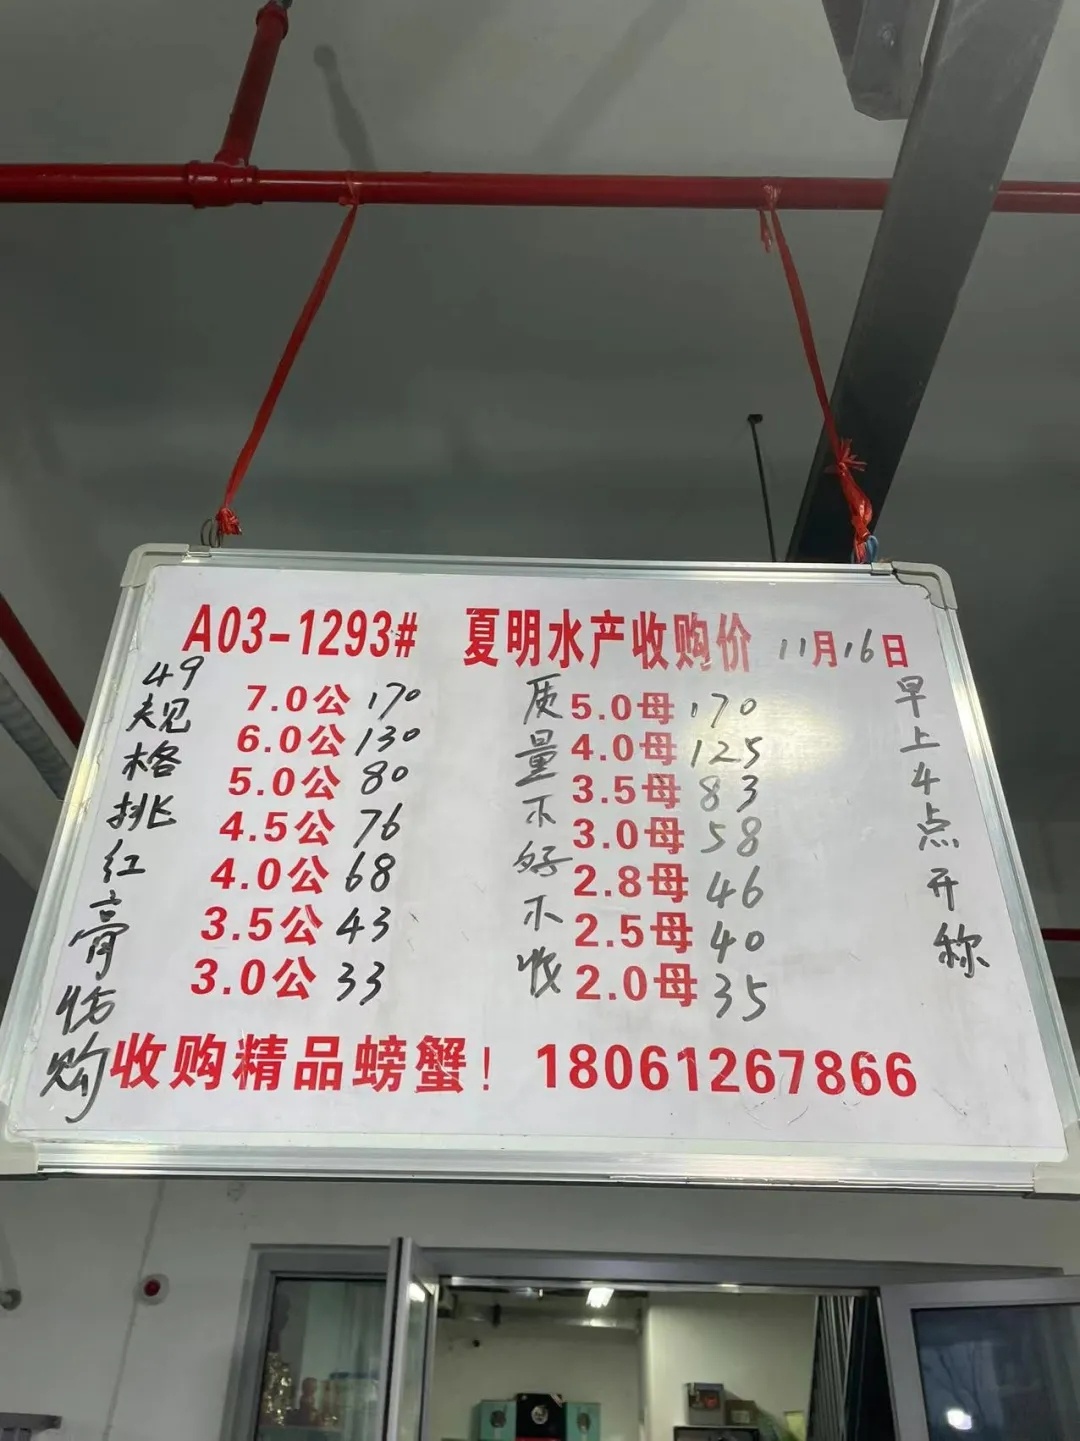 A03-1293# 夏明水产收购价 11月16日
49规格挑红膏
购
7.0公 170
6.0公 130
5.0公 80
4.5公 76
4.0公 68
3.5公 43
3.0公 33
质量不好不收
5.0母 170
4.0母 125
3.5母 83
3.0母 58
2.8母 46
2.5母 40
2.0母 35
早上4点开称
收购精品螃蟹！ 18061267866